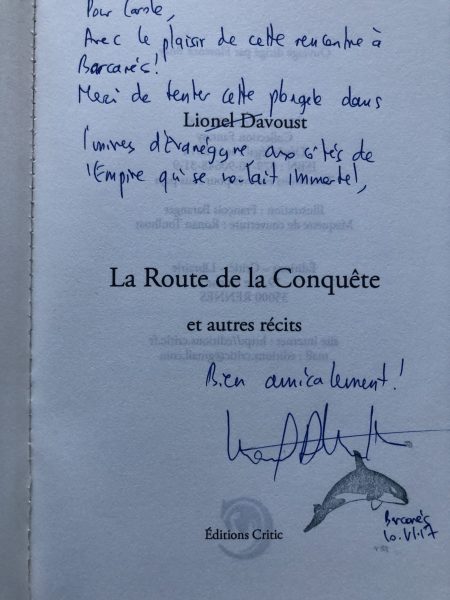 Pour Carole,
Avec le plaisir de cette rencontre à
Barcarès!
Merci de tenter cette plongée dans
Lionel Davoust
l'univers d'Évanégyre aux côtés de
l'Empire qui se voulait immortel,
La Route de la Conquête
et autres récits
Bien amicalement!
Barcarès
10.VI.17
Éditions Critic